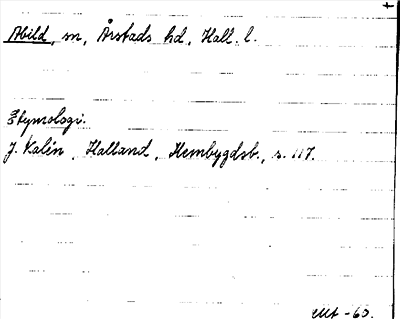 Abild, sn, Årstads hd, Hall. l.
Etymologi.
J. Kalén, Halland, Hembygdsb., s. 117.
-60.